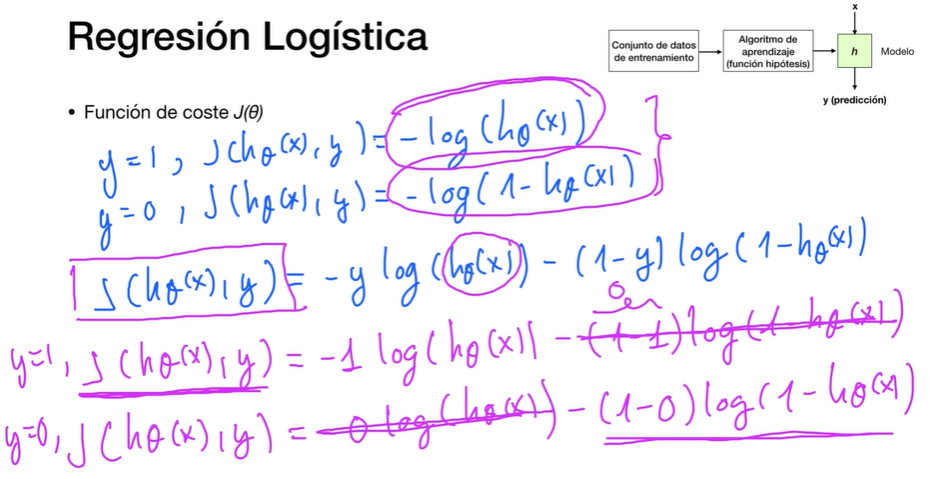 Regresión Logística
Conjunto de datos
de entrenamiento
Algoritmo de
aprendizaje
(función hipótesis)
x
h
Modelo
y (predicción)
• Función de coste J(θ)
y=1, J(hθ(x), y) = -log(hθ(x))
y=0, J(hθ(x), y) = -log(1-hθ(x))
J(hθ(x), y) = -y log(hθ(x)) - (1-y) log(1-hθ(x))
0
y=1, J(hθ(x), y) = -1 log(hθ(x)) - (1-1) log(1-hθ(x))
y=0, J(hθ(x), y) = - 0 log(hθ(x)) - (1-0) log(1-hθ(x))